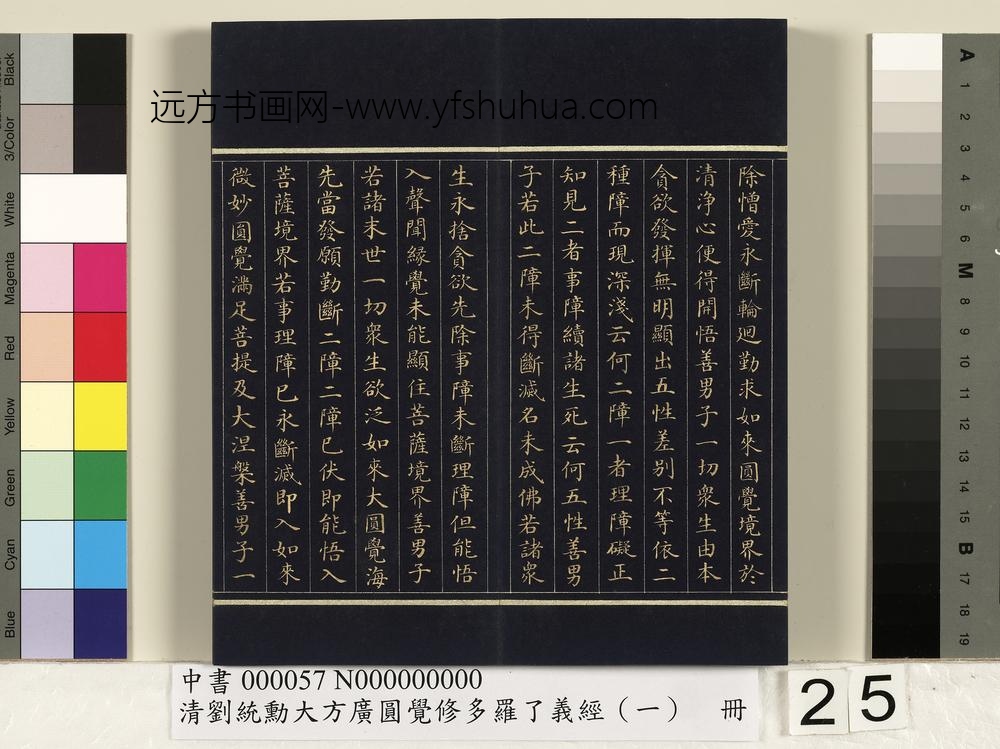 远方书画网-www.yfshuhua.com
除憎愛永斷輪廻勤求如來圓覺境界於
清淨心便得開悟善男子一切衆生由本
貪欲發揮無明顯出五性差别不等依二
種障而現深淺云何二障一者理障礙正
知見二者事障續諸生死云何五性善男
子若此二障未得斷滅名未成佛若諸衆
生永捨貪欲先除事障未斷理障但能悟
入聲聞緣覺未能顯住菩薩境界善男子
若諸末世一切衆生欲泛如來大圓覺海
先當發願勤斷二障二障已伏即能悟入
菩薩境界若事理障已永斷滅即入如來
微妙圓覺滿足菩提及大涅槃善男子一
Black
3/Color
White
Magenta
Red
Yellow
Green
Cyan
Blue
A
1
2
3
4
5
6
M
8
9
10
11
12
13
14
15
B
17
18
19
中書 000057 N000000000
清劉統勳大方廣圓覺修多羅了義經（一） 冊
25